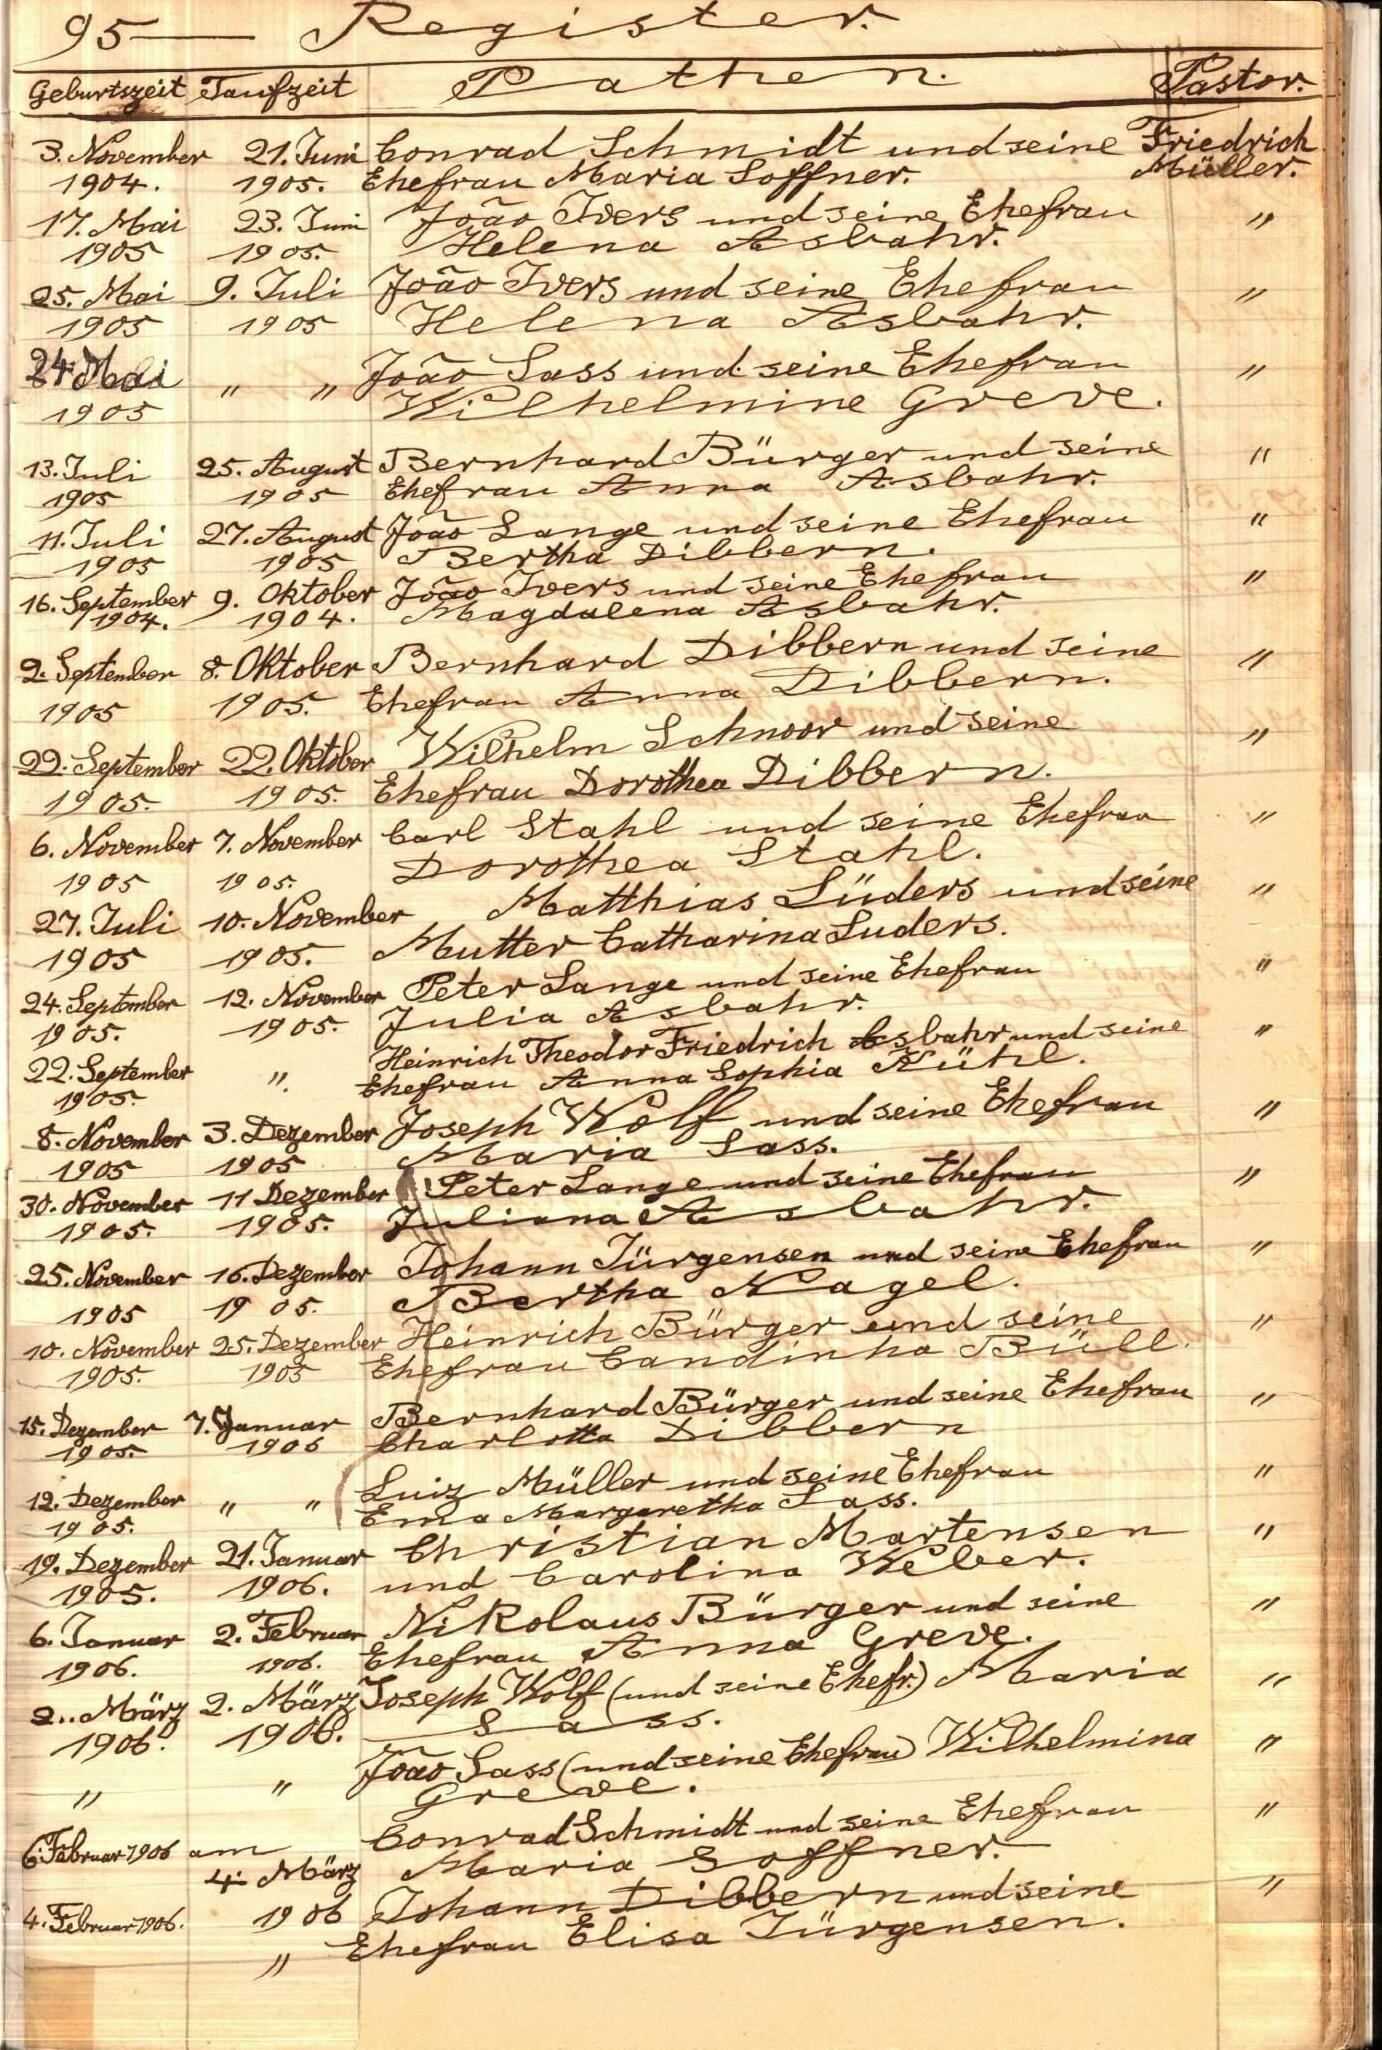 95 — Register.
Geburtszeit Taufzeit Pathen. Pastor.
3. November 21. Juni Conrad Schmidt und seine Friedrich
1904. 1905. Ehefrau Maria Soffner. Müller.
17. Mai 23. Juni João Ivers und seine Ehefrau "
1905 1905. Helena Asbahr.
25. Mai 9. Juli João Ivers und seine Ehefrau "
1905 1905 Helena Asbahr.
24 Mai " " João Sass und seine Ehefrau "
1905 Wilhelmine Greve.
13. Juli 25. August Bernhard Bürger und seine "
1905 1905 Ehefrau Anna Asbahr.
11. Juli 27. August João Lange und seine Ehefrau "
1905 1905 Bertha Dibbern.
16. September 9. Oktober João Ivers und seine Ehefrau "
1904. 1904. Magdalena Asbahr.
2. September 8. Oktober Bernhard Dibbern und seine "
1905 1905. Ehefrau Anna Dibbern.
22. September 22. Oktober Wilhelm Schnoor und seine "
1905. 1905. Ehefrau Dorothea Dibbern.
6. November 7. November Carl Stahl und seine Ehefrau "
1905 1905. Dorothea Stahl.
27. Juli 10. November Matthias Lüders und seine "
1905 1905. Mutter Catharina Luders.
24. September 12. November Peter Lange und seine Ehefrau "
1905. 1905. Julia Asbahr.
22. September ". Heinrich Theodor Friedrich Asbahr und seine "
1905. Ehefrau Anna Sophia Kühl.
8. November 3. Dezember Joseph Wolf und seine Ehefrau "
1905 1905 Maria Sass.
30. November 11 Dezember Peter Lange und seine Ehefrau "
1905. 1905. Juliana Asbahr.
25. November 16. Dezember Johann Jürgensen und seine Ehefrau "
1905 1905. Bertha Nagel.
10. November 25. Dezember Heinrich Bürger und seine "
1905. 1905 Ehefrau Candinha Büll.
15. Dezember 7. Januar Bernhard Bürger und seine Ehefrau "
1905. 1906 Charlotta Dibbern
12. Dezember " " Luiz Müller und seine Ehefrau "
1905. Ema Margaretha Sass.
19. Dezember 21. Januar Christian Martensen "
1905. 1906. und Carolina Weber.
6. Januar 2. Februar Nikolaus Bürger und seine "
1906. 1906. Ehefrau Anna Greve.
2. März 2. März Joseph Wolf (und seine Ehefr.) Maria "
1906. 1906. Sass.
" " João Sass (und seine Ehefrau) Wilhelmina "
Greve.
6. Februar 1906 am Conrad Schmidt und seine Ehefrau "
4. März Maria Soffner.
4. Februar 1906. 1906 Johann Dibbern und seine "
" Ehefrau Elisa Jürgensen.